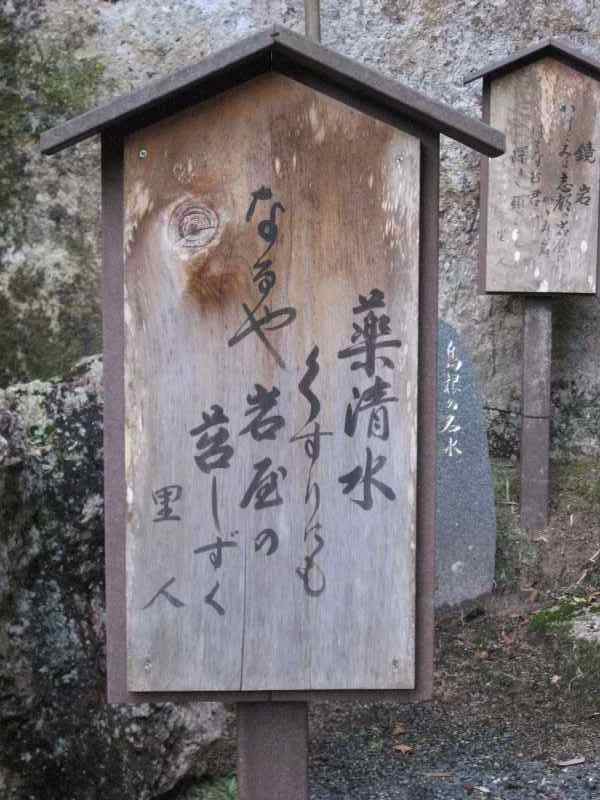 薬清水
くすりにも
なるや岩屋の
苔しずく
里人
鏡岩
島根の名水